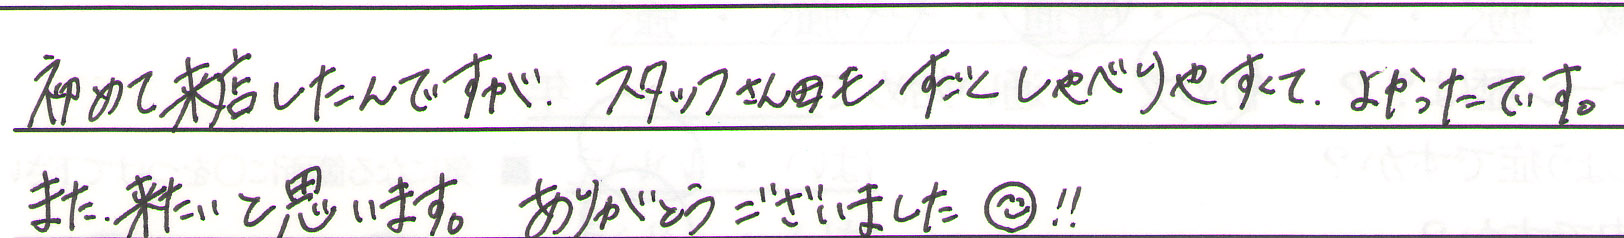 初めて来店したんですが、スタッフさん も すごくしゃべりやすくて、よかったです。
また、来たいと思います。 ありがとうございました☺!!